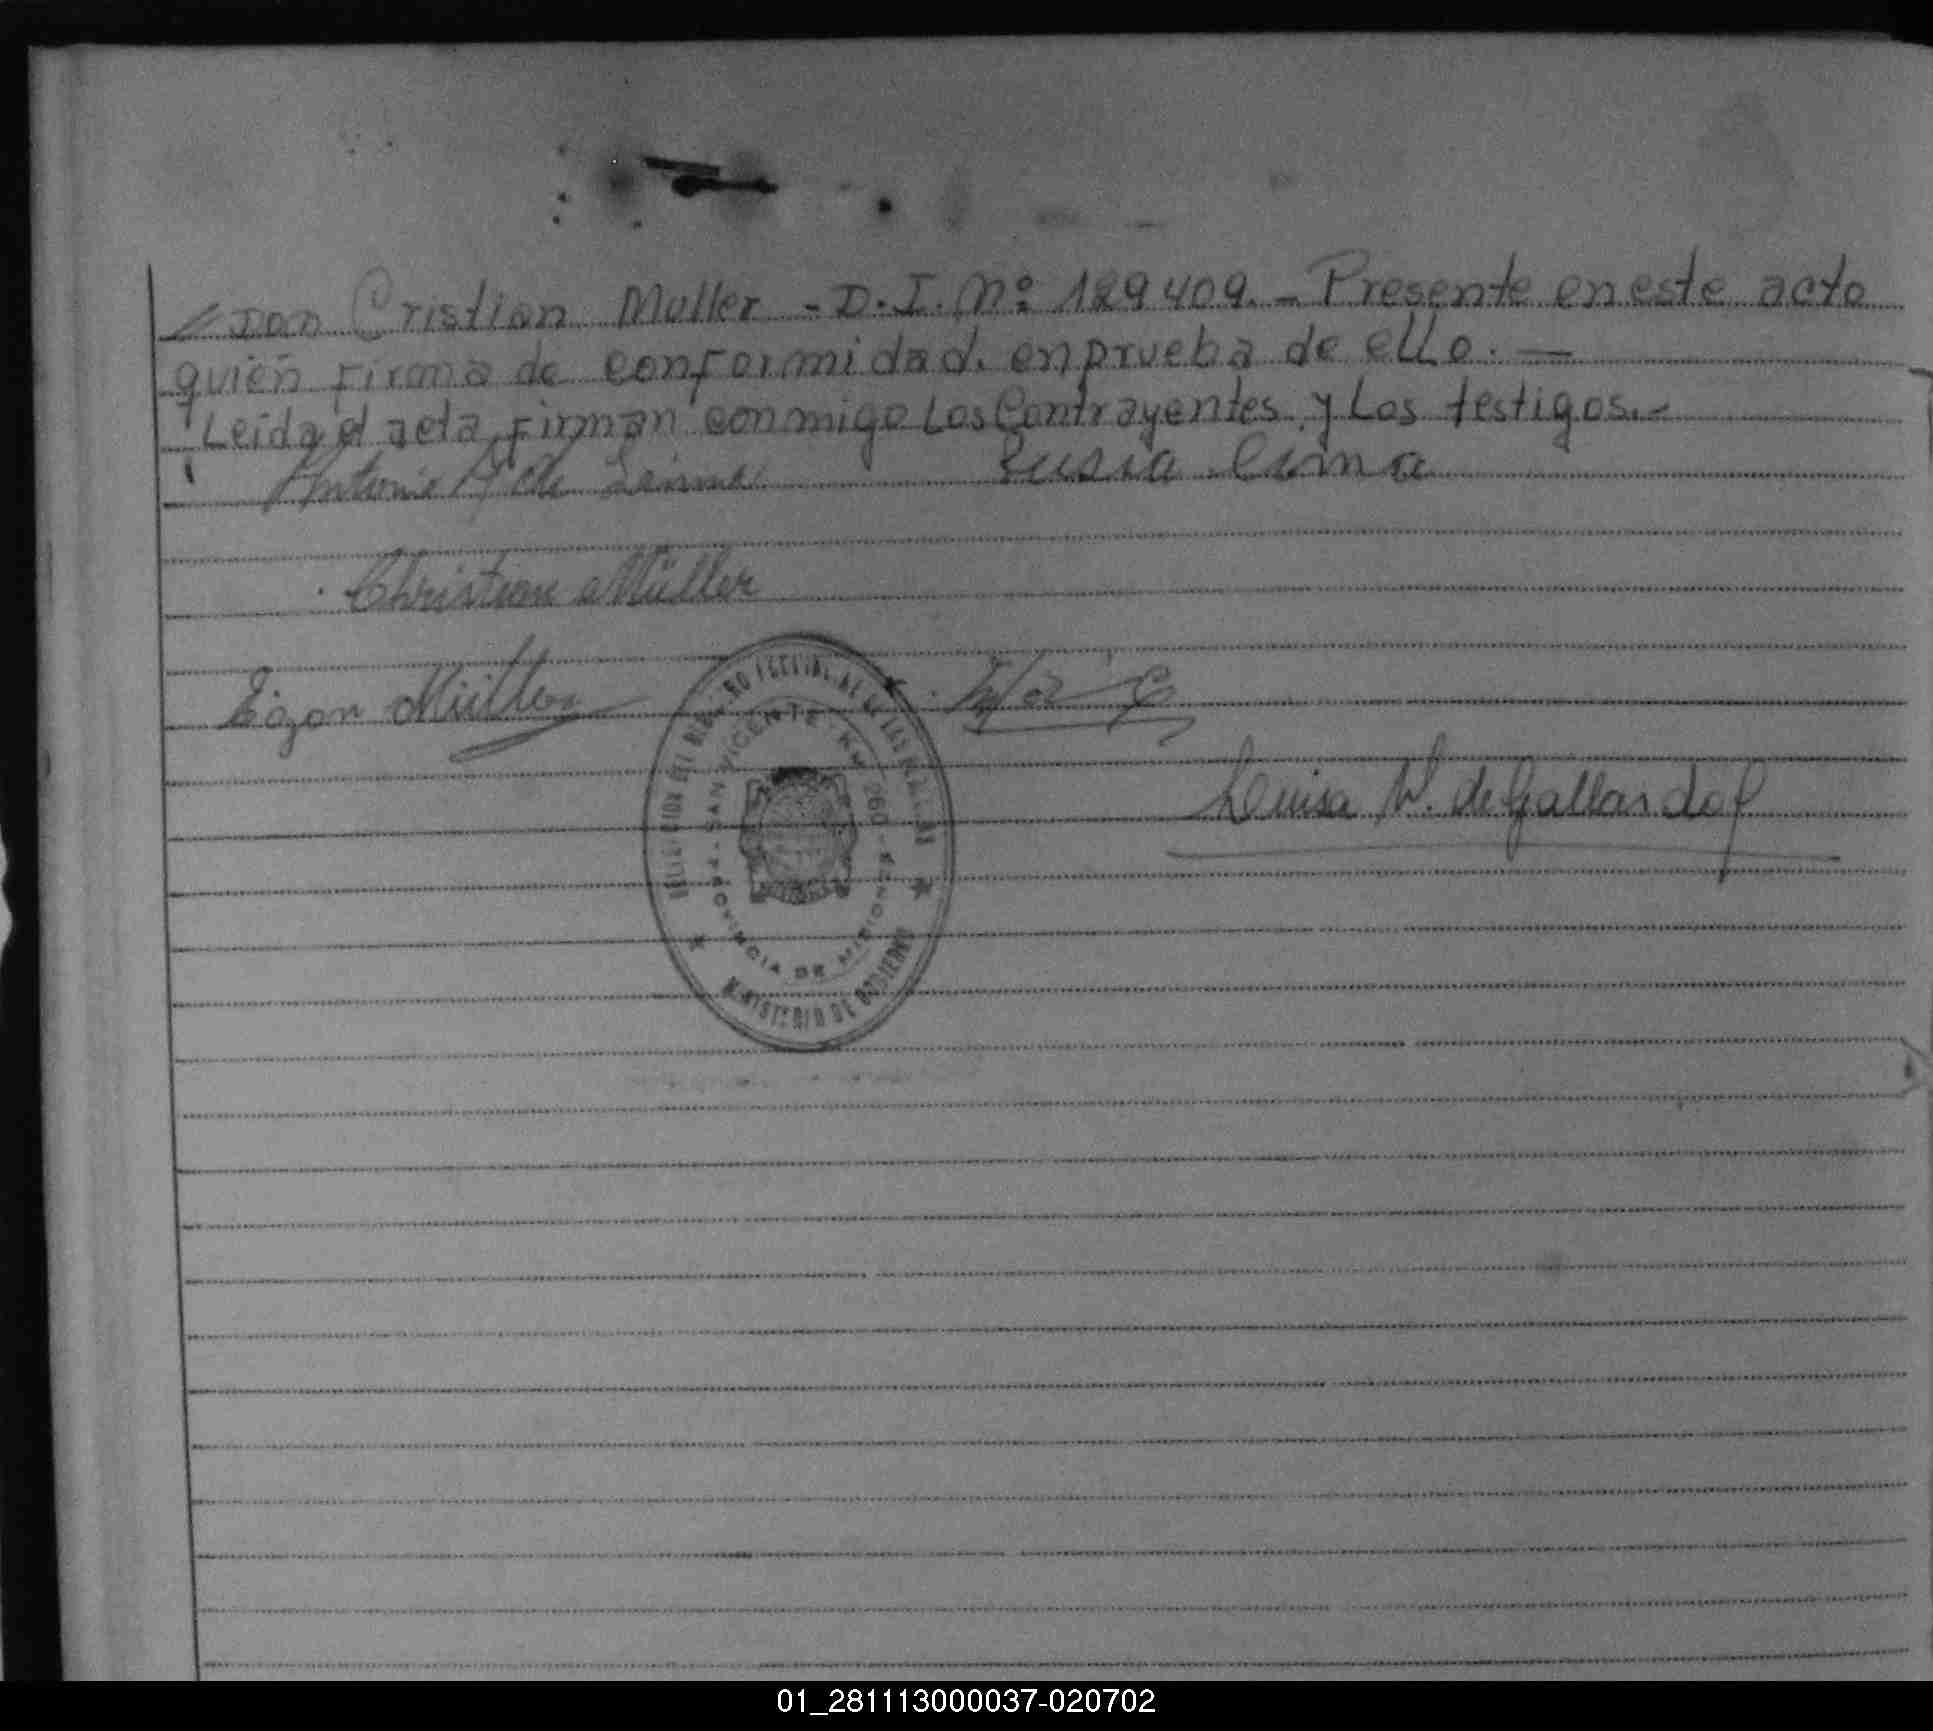 Don Cristian Muller - D.I. Nº 129409. - Presente en este acto
quién firma de conformidad. en prueba de ello. —
Leída el acta firman conmigo Los Contrayentes y Los testigos.-
Antonio de Lima Lusia Lima
Christian Müller
Egon Müller
Luisa W. de Gallardo
SAN VICENTE - KM 260
PROVINCIA DE MISIONES
MINISTERIO DE GOBIERNO
01_281113000037-020702